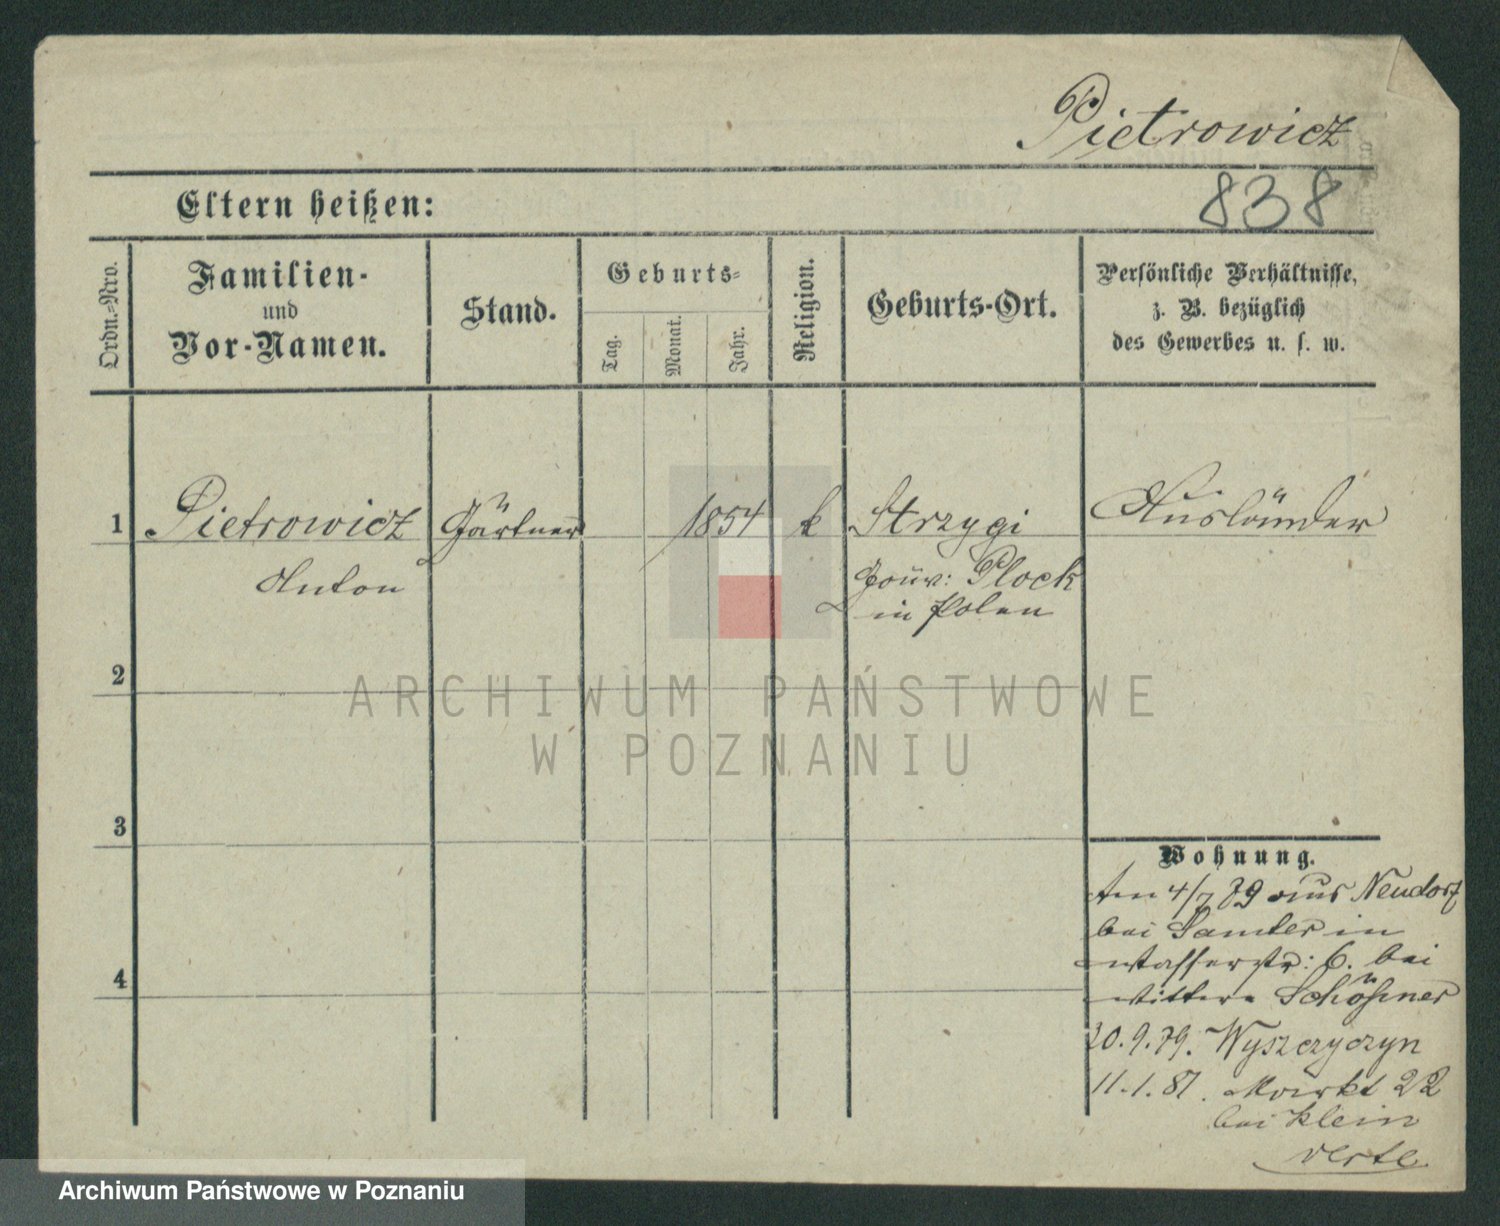 Pietrowicz
838
Eltern heißen:
Ordn.-Nro.
Familien-
und
Vor-Namen.
Stand.
Geburts-
Tag.
Monat.
Jahr.
Religion.
Geburts-Ort.
Persönliche Verhältnisse,
z. B. bezüglich
des Gewerbes u. s. w.
1 Pietrowicz Gärtner 1854 k Strzygi Ausländer
Anton
Gouv: Plock
in Polen
2
ARCHIWUM PAŃSTWOWE
W POZNANIU
3
4
Wohnung.
Am 4/7 79 aus Neudorf
bei Samter in
Wasserstr: 6. bei
Schößner
20.9.79. Wyszczyczyn
11.1.81. Markt 22
bei Klein
verte
Archiwum Państwowe w Poznaniu